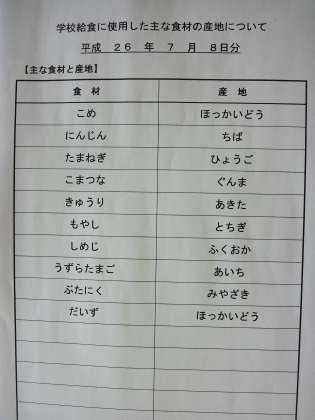 学校給食に使用した主な食材の産地について
平成 26 年 7 月 8日分
【主な食材と産地】
食 材 産 地
こめ ほっかいどう
にんじん ちば
たまねぎ ひょうご
こまつな ぐんま
きゅうり あきた
もやし とちぎ
しめじ ふくおか
うずらたまご あいち
ぶたにく みやざき
だいず ほっかいどう